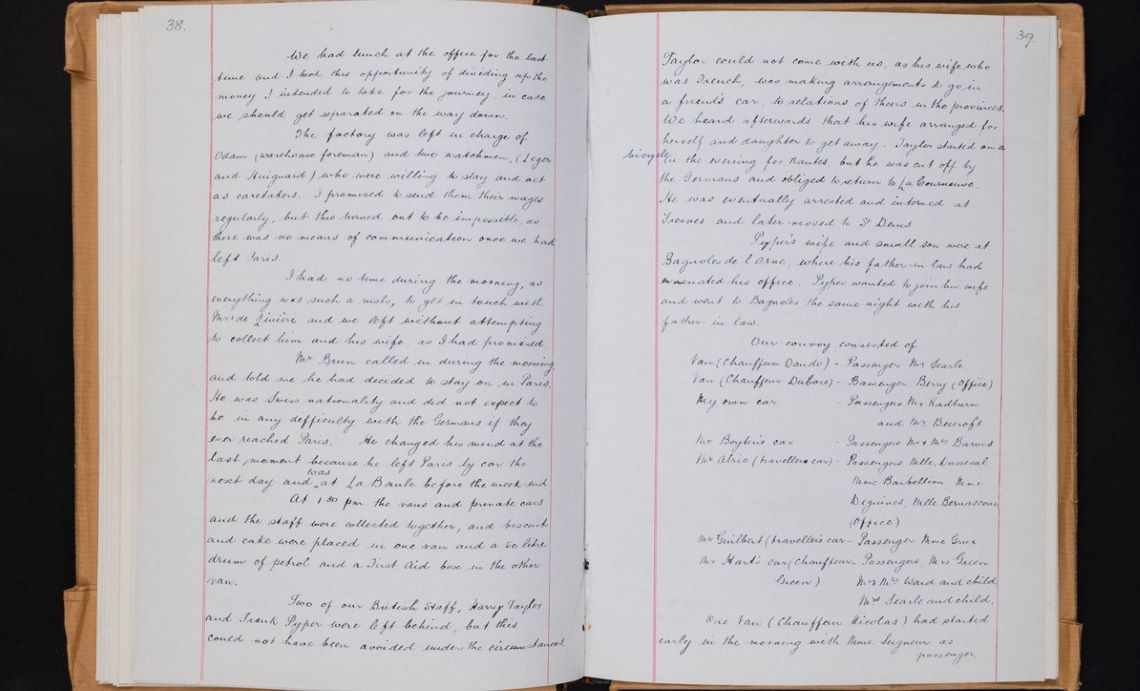 38.
We had lunch at the office for the last
time and I took this opportunity of dividing up the
money I intended to take for the journey, in case
we should get separated on the way down.
The factory was left in charge of
Odam (warehouse foreman) and two watchmen, (Leger
and Huignard) who were willing to stay and act
as caretakers. I promised to send them their wages
regularly, but this turned out to be impossible, as
there was no means of communication once we had
left Paris.
I had no time during the morning, as
everything was such a rush, to get in touch with
Mr de Liniere and we left without attempting
to collect him and his wife, as I had promised.
Mr Brun called in during the morning
and told me he had decided to stay on in Paris.
He was Swiss nationality and did not expect to
be in any difficulty with the Germans if they
ever reached Paris. He changed his mind at the
last moment because he left Paris by car the
next day and was at La Baule before the week end.
At 1 30 pm the vans and private cars
and the staff were collected together, and biscuit
and cake were placed in one van and a 50 litre
drum of petrol and a First Aid box in the other
van.
Two of our British Staff, Harry Taylor
and Frank Pyper were left behind, but this
could not have been avoided under the circumstances.
39.
Taylor could not come with us, as his wife, who
was French, was making arrangements to go, in
a friend's car, to relations of theirs in the provinces.
We heard afterwards that his wife arranged for
herself and daughter to get away. Taylor started on a
bicycle in the evening for Nantes, but he was cut off by
the Germans and obliged to return to La Courneuve.
He was eventually arrested and interned at
Fresnes and later moved to St Denis
Pyper's wife and small son were at
Bagnoles de l'Orne, where his father-in-law had
evacuated his office. Pyper wanted to join his wife
and went to Bagnoles the same night with his
father-in law.
Our convoy consisted of
Van (Chauffeur Dando) - Passenger Mr Searle
Van (Chauffeur Dubois) - Passenger Bery (Office)
My own car - Passengers Mrs Radburn
and Mr Beecroft
Mr Boyton's car - Passengers Mr & Mrs Barnes
Mr Alric (travellers car) - Passengers Mlle. Dusseval
Mme Barbellion, Mme
Dignines, Mlle Bernascone
(Office)
Mr Guilbert (travellers car - Passenger Mme Grux
Mr Hart's car (Chauffeur Passengers, Mrs Green
Green) Mr & Mrs Ward and child
Mrs Searle and child.
One Van (Chauffeur Nicolas) had started
early in the morning with Mme. Seigneur as
passenger.